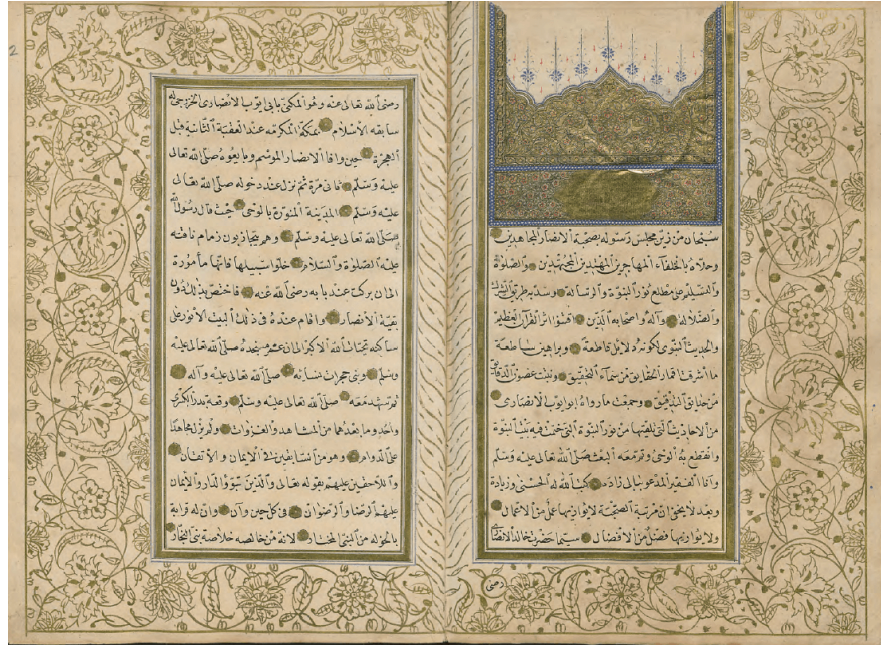 سبحان من زين مجلس رسوله بصحبة الانصار المجاهدين
وحلاه بالخلفاء المهاجرين المهتدين المجتهدين والصلوة
والتسليم على مطلع نور النبوة والرسالة وسد به طريق الشرك
والضلالة وآله واصحابه الذين اقتفوا اثر القرآن العظيم
والحديث النبوى لكونه دلايل قاطعة وبراهين ساطعة
ما اشرقت اقمار الحقايق من سماء التحقيق ونبتت غصون الدقايق
من حدايق التدقيق وجمعت ما رواه ابو ايوب الانصارى
من الاحاديث التى تلقيتها من نور النبوة التى ختمت فيه نبأ النبوة
وانقطع به الوحى وتم معه البعث صلى الله تعالى عليه وسلم
وانا الفقير المدعو ببالى زاده كتب الله له الحسنى وزيادة
وبعد لا يخفى ان مرتبة الصحبة لا يوازيها عمل من الاعمال
ولا يوازيها فضل من الافضال سيما حضرت خالد الانصارى
رضى
رضى الله تعالى عنه وهو المكنى بابى ايوب الانصارى الخزرجى له
سابقه الاسلام بمكة المكرمه عند العقبة الثانية قبل
الهجرة حين وافا الانصار الموسم وبايعوه صلى الله تعالى
عليه وسلم ثانى مرة ثم نزل عند دخوله صلى الله تعالى
عليه وسلم المدينة المنورة بالوحى حيث قال رسول الله
صلى الله تعالى عليه وسلم وهم يتجاذبون زمام ناقته
عليه الصلوة والسلام خلوا سبيلها فانها مأمورة
الى ان بركت عند بابه رضى الله عنه فاختص بذلك دون
بقية الانصار واقام عنده فى ذلك البيت الانور على
ساكنه تحيات الله الاكبر الى ان عمر مسجده صلى الله تعالى عليه
وسلم وبنى حجرات نسائه صلى الله تعالى عليه وآله
ثم شهد معه صلى الله تعالى عليه وسلم وقعة بدر الكبرى
واحد وما بعدهما من المشاهد والغزوات ولم يزل مجاهدا
على الدوام وهو من السابقين فى الايمان والاتقان
واللاحقين عليهم بقوله تعالى والذين تبوؤ الدار والايمان
عليهم الرضا والرضوان فى كل حين وآن وان له قرابة
بالخوله من النبى المختار لانه من خالصه خلاصة بنى النجار
2